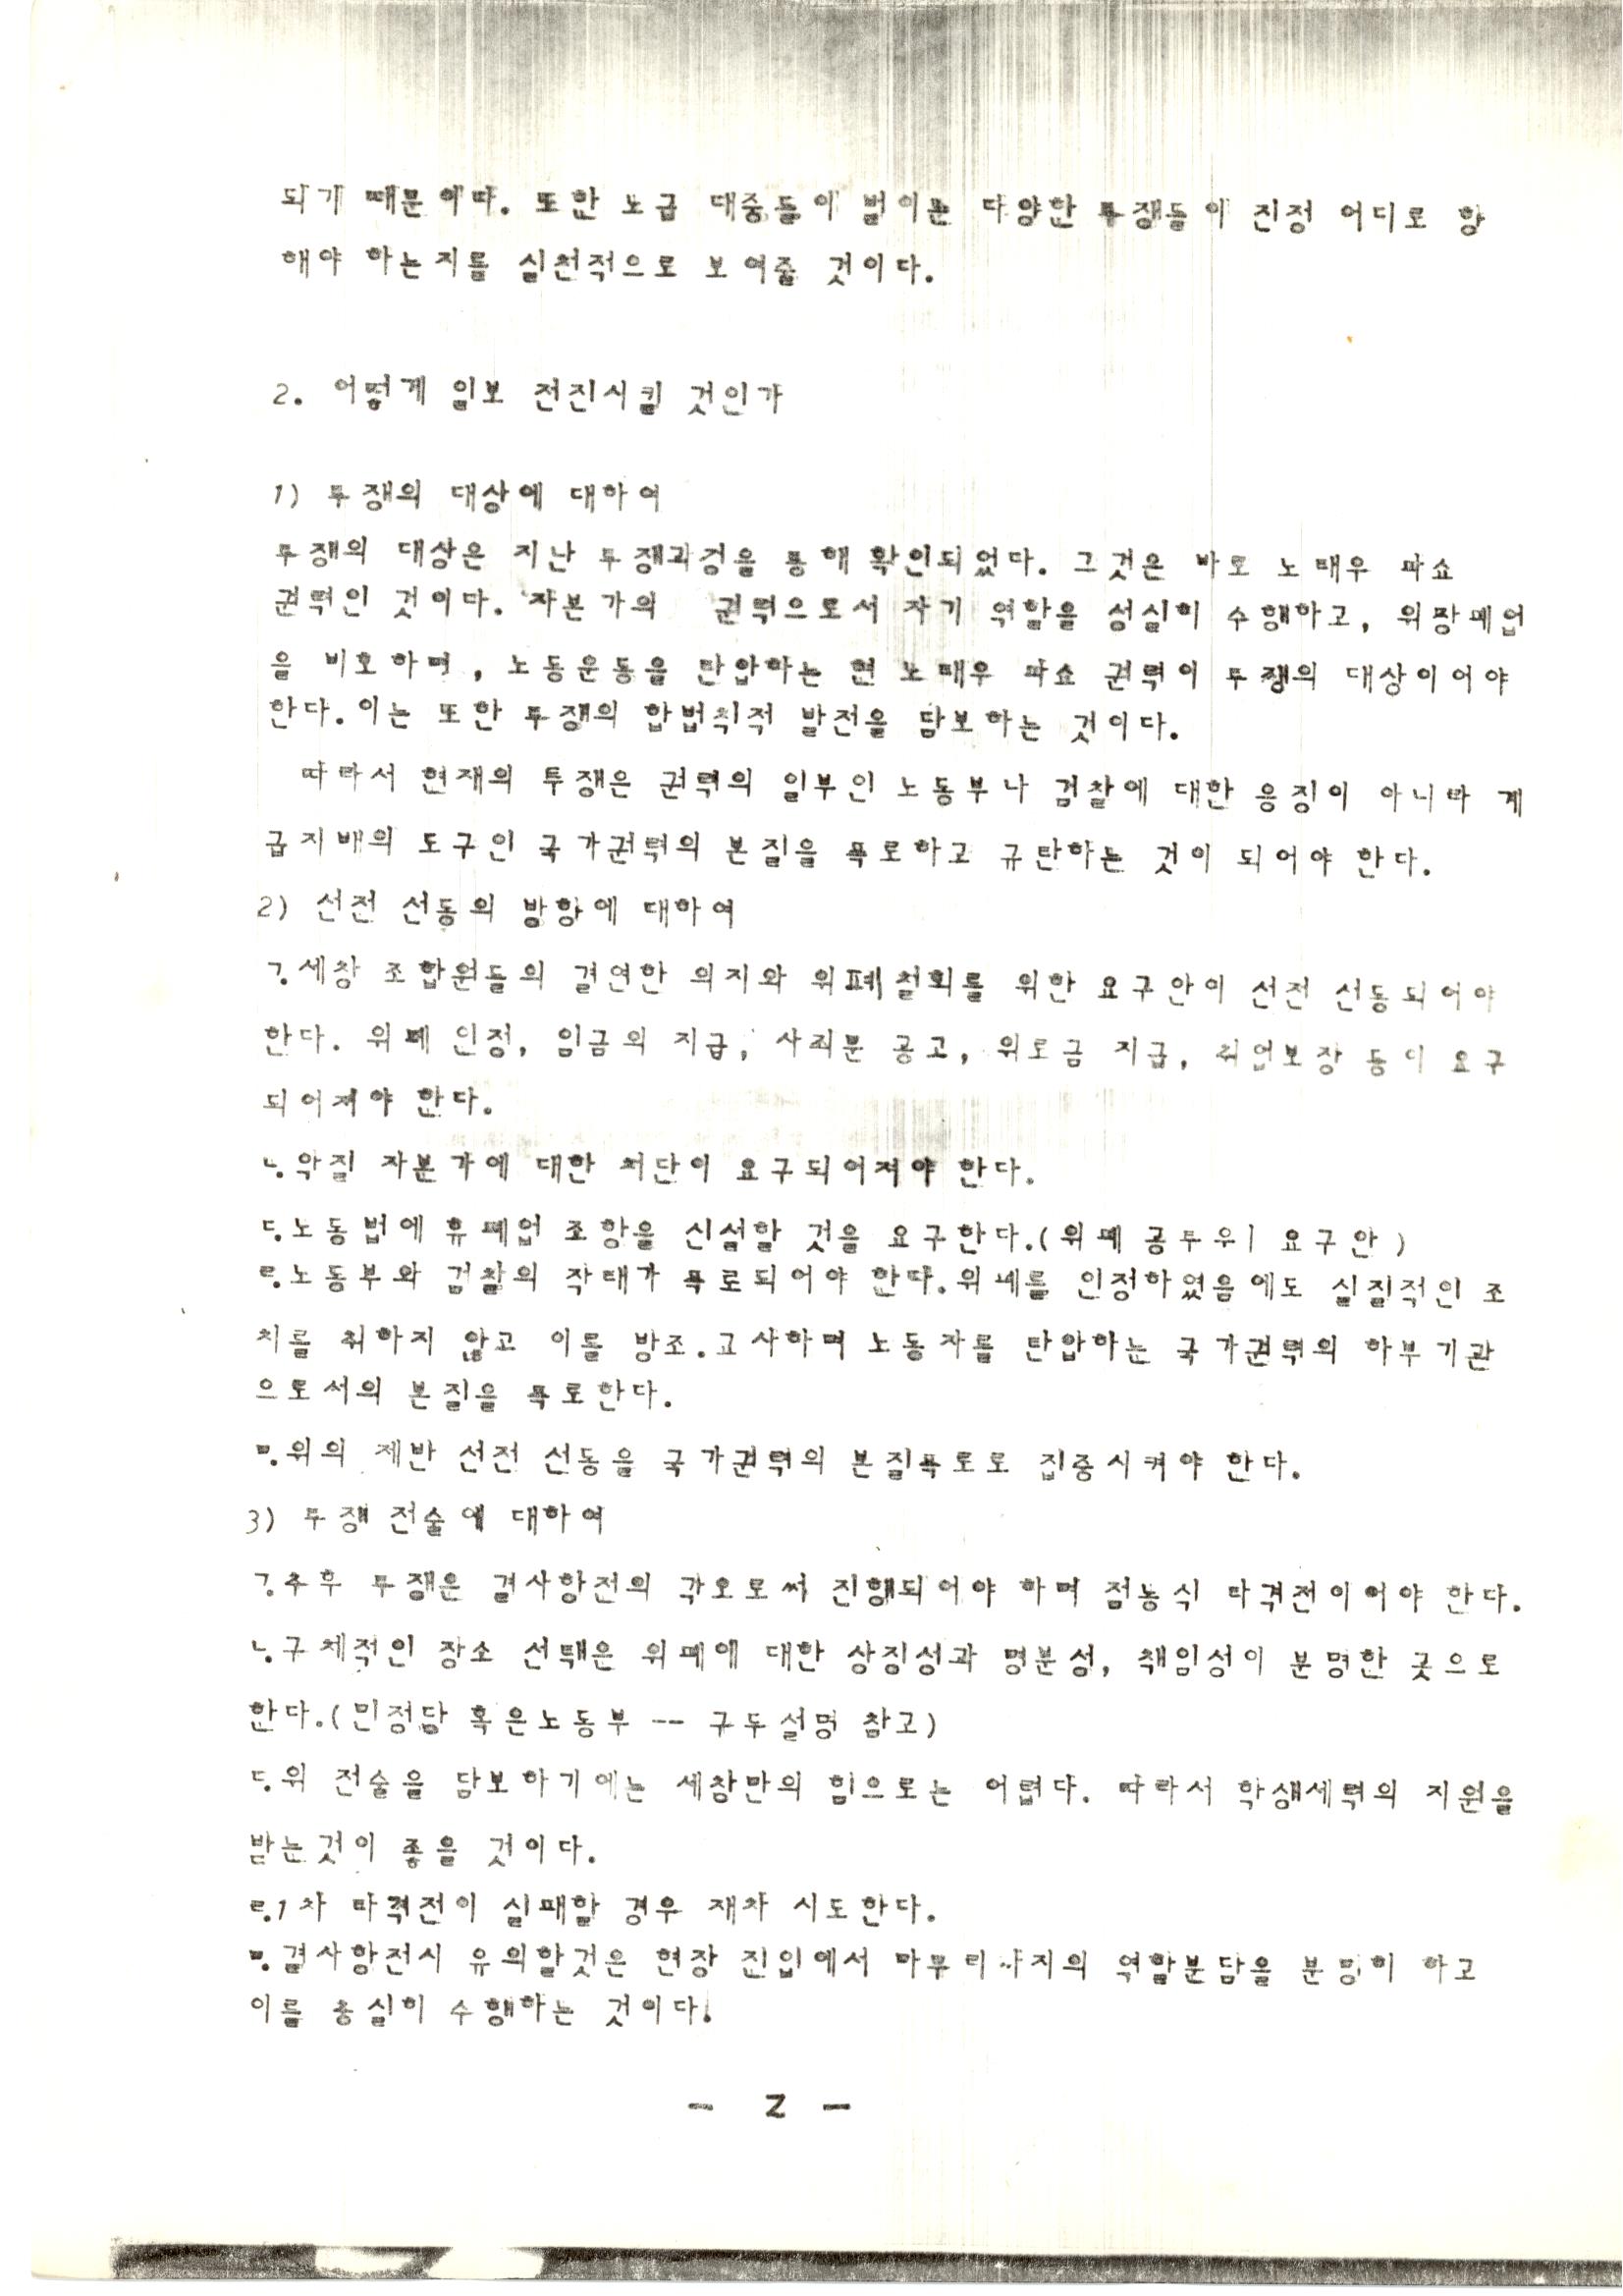 되기 때문이다. 또한 노급 대중들이 벌이는 다양한 투쟁등이 진정 어디로 향
해야 하는지를 실천적으로 보여줄 것이다.
2. 어떻게 일보 전진시킬 것인가
1) 투쟁의 대상에 대하여
투쟁의 대상은 지난 투쟁과정을 통해 확인되었다. 그것은 바로 노태우 파쇼
권력인 것이다. 자본가의 권력으로서 자기 역할을 성실히 수행하고, 위장폐업
을 비호하며, 노동운동을 탄압하는 현 노태우 파쇼 권력이 투쟁의 대상이어야
한다. 이는 또한 투쟁의 합법칙적 발전을 담보하는 것이다.
따라서 현재의 투쟁은 권력의 일부인 노동부나 검찰에 대한 응징이 아니라 계
급지배의 도구인 국가권력의 본질을 폭로하고 규탄하는 것이 되어야 한다.
2) 선전 선동의 방향에 대하여
ㄱ.세창 조합원들의 결연한 의지와 위폐철회를 위한 요구안이 선전 선동되어야
한다. 위폐 인정, 임금의 지급, 사죄문 공고, 위로금 지급, 취업보장 등이 요구
되어져야 한다.
ㄴ.악질 자본가에 대한 처단이 요구되어져야 한다.
ㄷ.노동법에 휴폐업 조항을 신설할 것을 요구한다.(위폐 공투위 요구안)
ㄹ.노동부와 검찰의 작태가 폭로되어야 한다.위폐를 인정하였음에도 실질적인 조
치를 취하지 않고 이를 방조.교사하며 노동자를 탄압하는 국가권력의 하부기관
으로서의 본질을 폭로한다.
ㅁ.위의 제반 선전 선동을 국가권력의 본질폭로로 집중시켜야 한다.
3) 투쟁 전술에 대하여
ㄱ.추후 투쟁은 결사항전의 각오로써 진행되어야 하며 점농식 타격전이어야 한다.
ㄴ.구체적인 장소 선택은 위폐에 대한 상징성과 명분성, 책임성이 분명한 곳으로
한다.(민정당 혹은노동부 -- 구두설명 참고)
ㄷ.위 전술을 담보하기에는 세창만의 힘으로는 어렵다. 따라서 학생세력의 지원을
받는것이 좋을 것이다.
ㄹ.1차 타격전이 실패할 경우 재차 시도한다.
ㅁ.결사항전시 유의할것은 현장 진입에서 마무리까지의 역할분담을 분명히 하고
이를 충실히 수행하는 것이다.
- 2 -